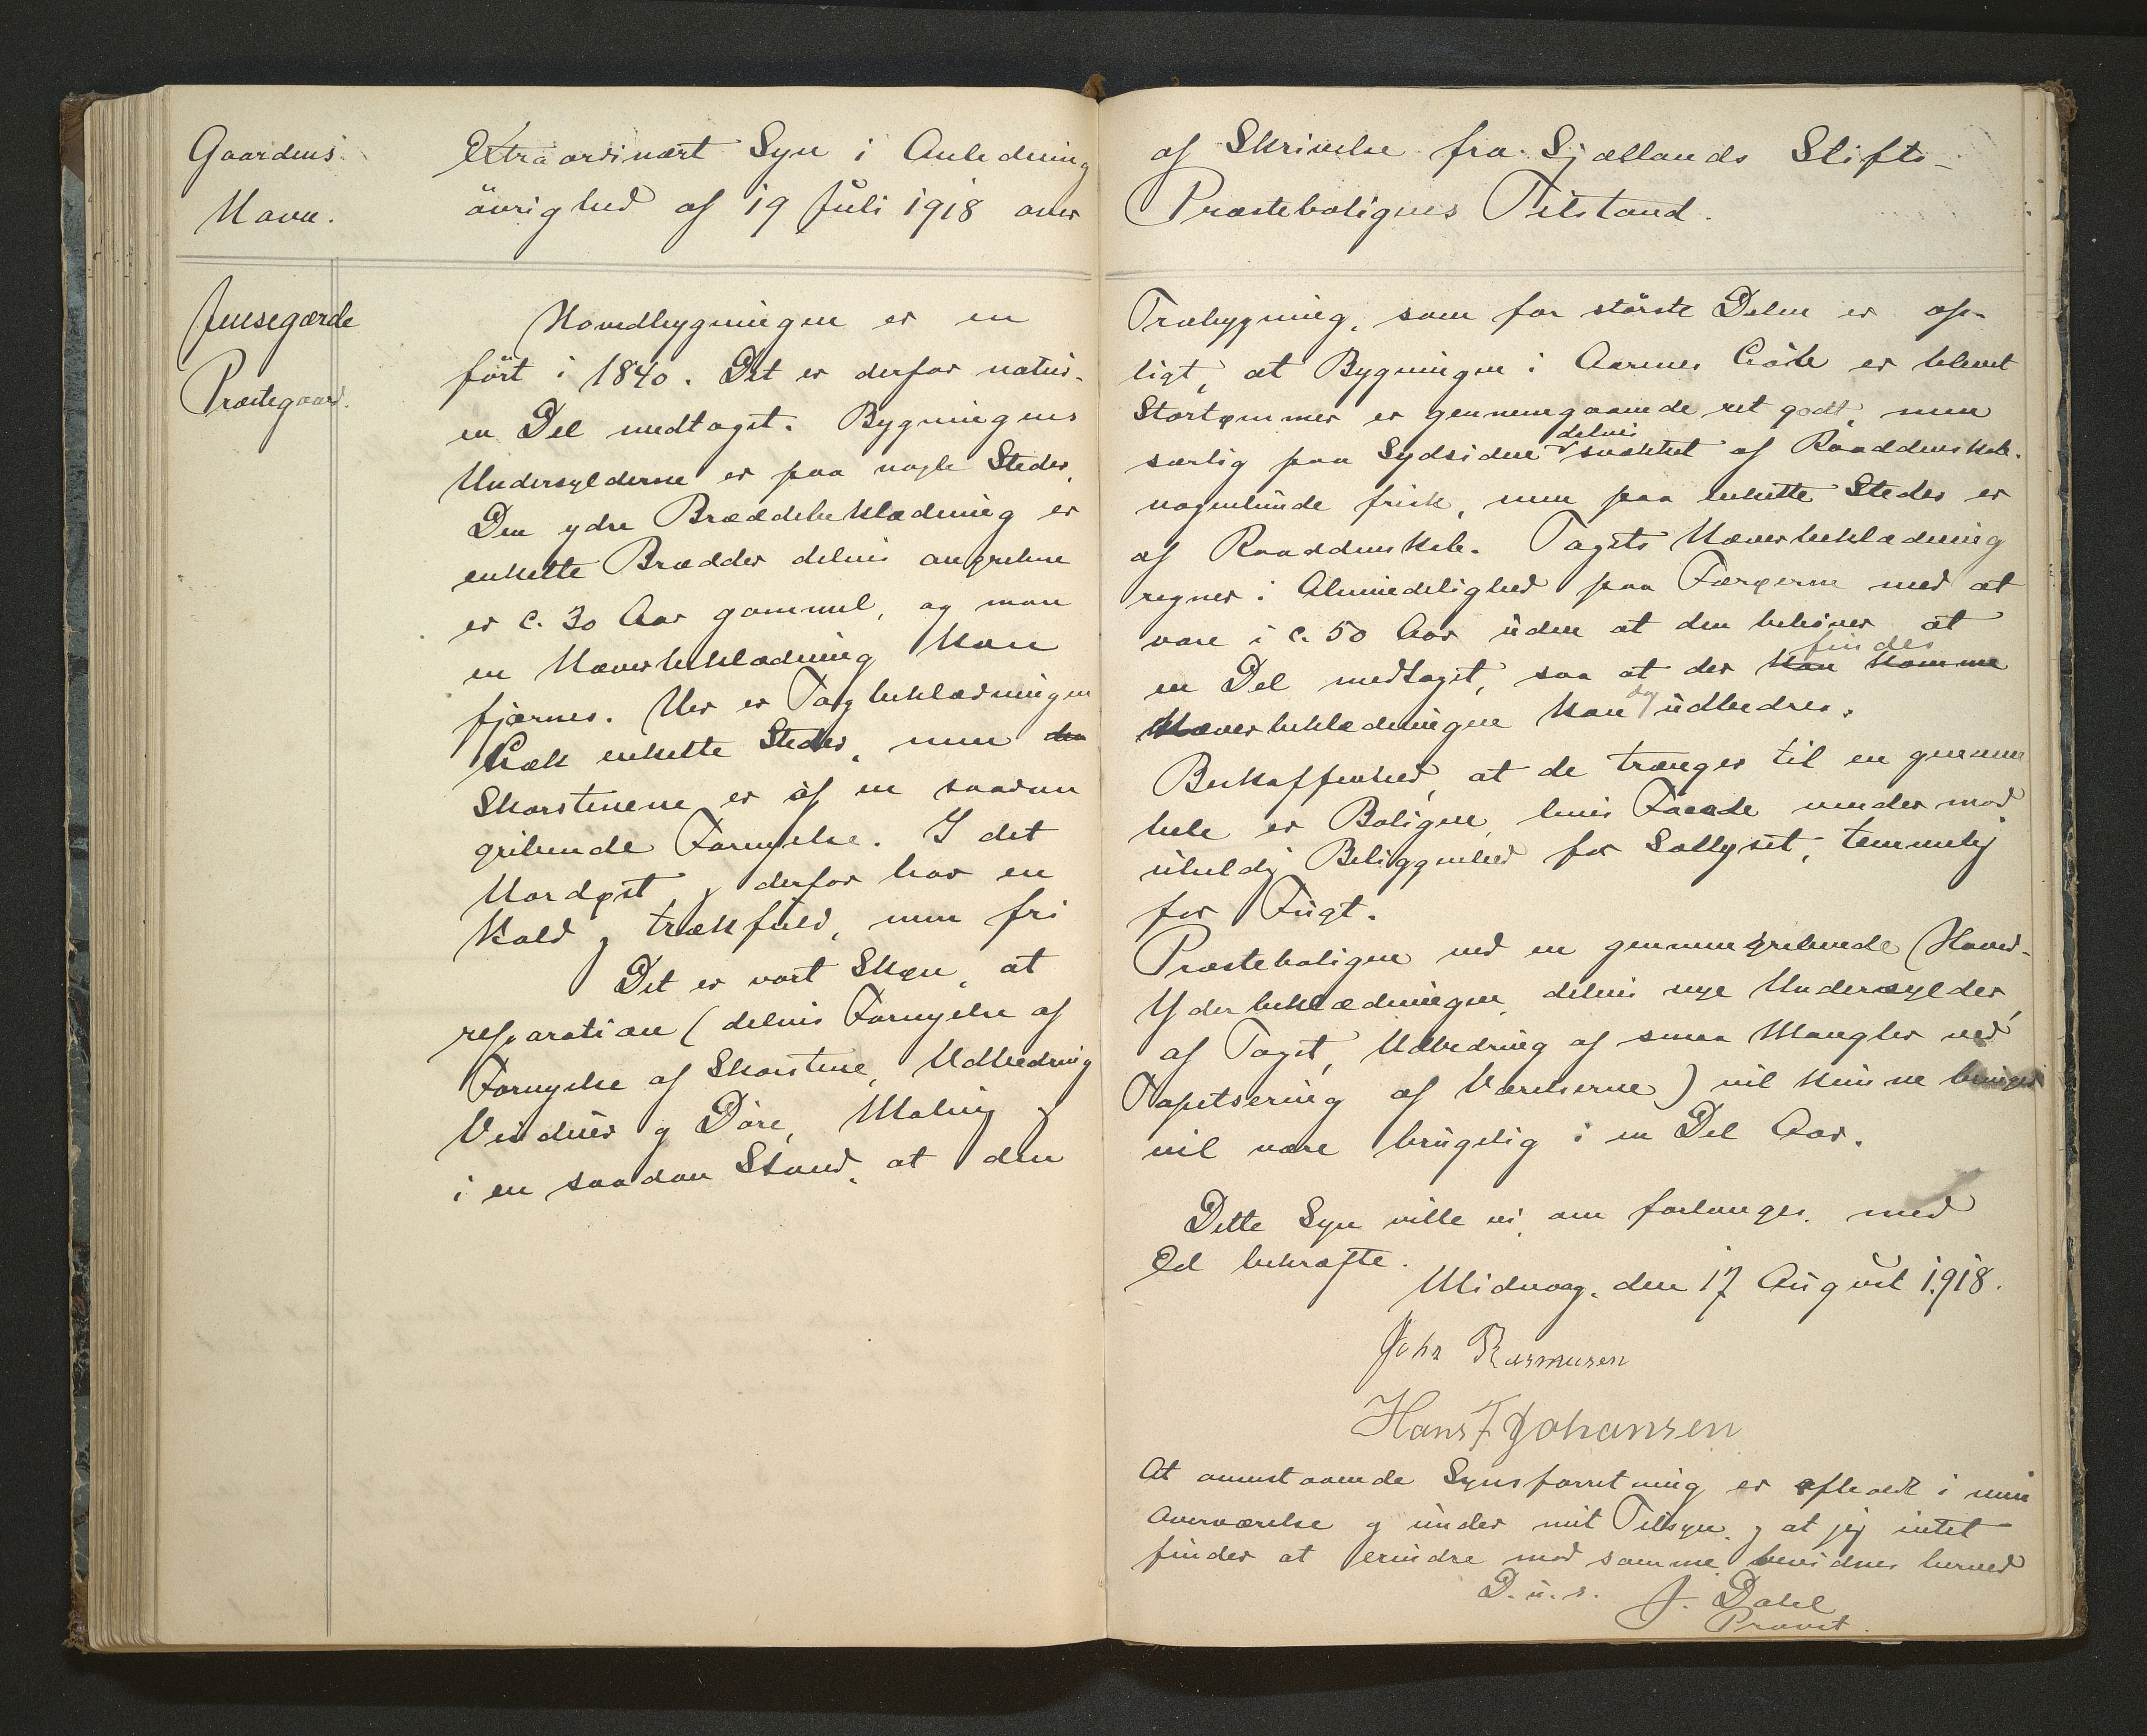 Gaardens Extraordinært Syn i Anledning af Skrivelse fra Sjællands Stifts-
Navn. øvrighed af 19 Juli 1918 over Præsteboligens Tilstand.
Jensegærde Hovedbygningen er en Træbygning, som for største Delen er op-
ført i 1840. Det er derfor natur- ligt, at Bygningen i Aarenes Løb er blevet
Præstegaard. en Del medtaget. Bygningens Stortømmer er gennemgaaende ret godt, men
Undersylderne er paa nogle Steder, særlig paa Sydsiden delvis svækket af Raaddenskab.
Den ydre Bræddebeklædning er nogenlunde frisk, men paa enkelte Steder er
enkelte Brædder delvis angrebne af Raaddenskab. Tagets Næverbeklædning
er c. 30 Aar gammel, og man regner i Almindelighed paa Færøerne med at
en Næverbeklædning kan vare i c. 50 Aar uden at den behøver at
fjærnes. Her er Tagbeklædningen en Del medtaget, saa at der kan komme findes
Læk enkelte Steder, men den Næverbeklædningen kan dog udbedres.
Skorstenene er af en saadan Beskaffenhed, at de trænger til en gennem
gribende Fornyelse. I det hele er Boligen, hvis Facade vender mod
Nordøst og derfor har en uheldig Beliggenhed for Sollyset, temmelig
kold og trækfuld, men fri for Fugt.
Det er vort Skøn, at Præsteboligen ved en gennemgribende Hoved-
reparation (delvis Fornyelse af Yderbeklædningen, delvis nye Undersylder,
Fornyelse af Skorstene, Udbedring af Taget, Udbedring af smaa Mangler ved
Vinduer og Døre, Maling og Tapetsering af Værelserne) vil kunne bringes
i en saadan Stand, at den vil være brugelig i en Del Aar.
Dette Syn ville vi, om forlanges, med
Ed bekræfte.
Midvaag, den 17 August 1918.
Johs Rasmusen
Hans F Johansen
At ovenstaaende Synsforretning er afholdt i min
Overværelse og under mit Tilsyn, og at jeg intet
finder at erindre mod samme, bevidnes herved
D. u. s. J. Dahl
Provst.